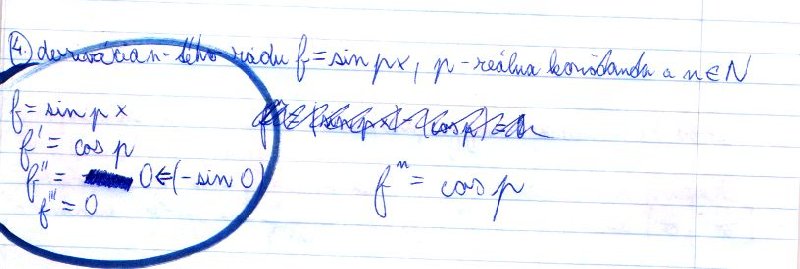 4. derivácia n-tého rádu f = sin px, p - reálna konštanta a n ∈ N
f = sin p x
f' = cos p
f'' = 0 ⇐ (- sin 0)
f''' = 0
fⁿ = cos p